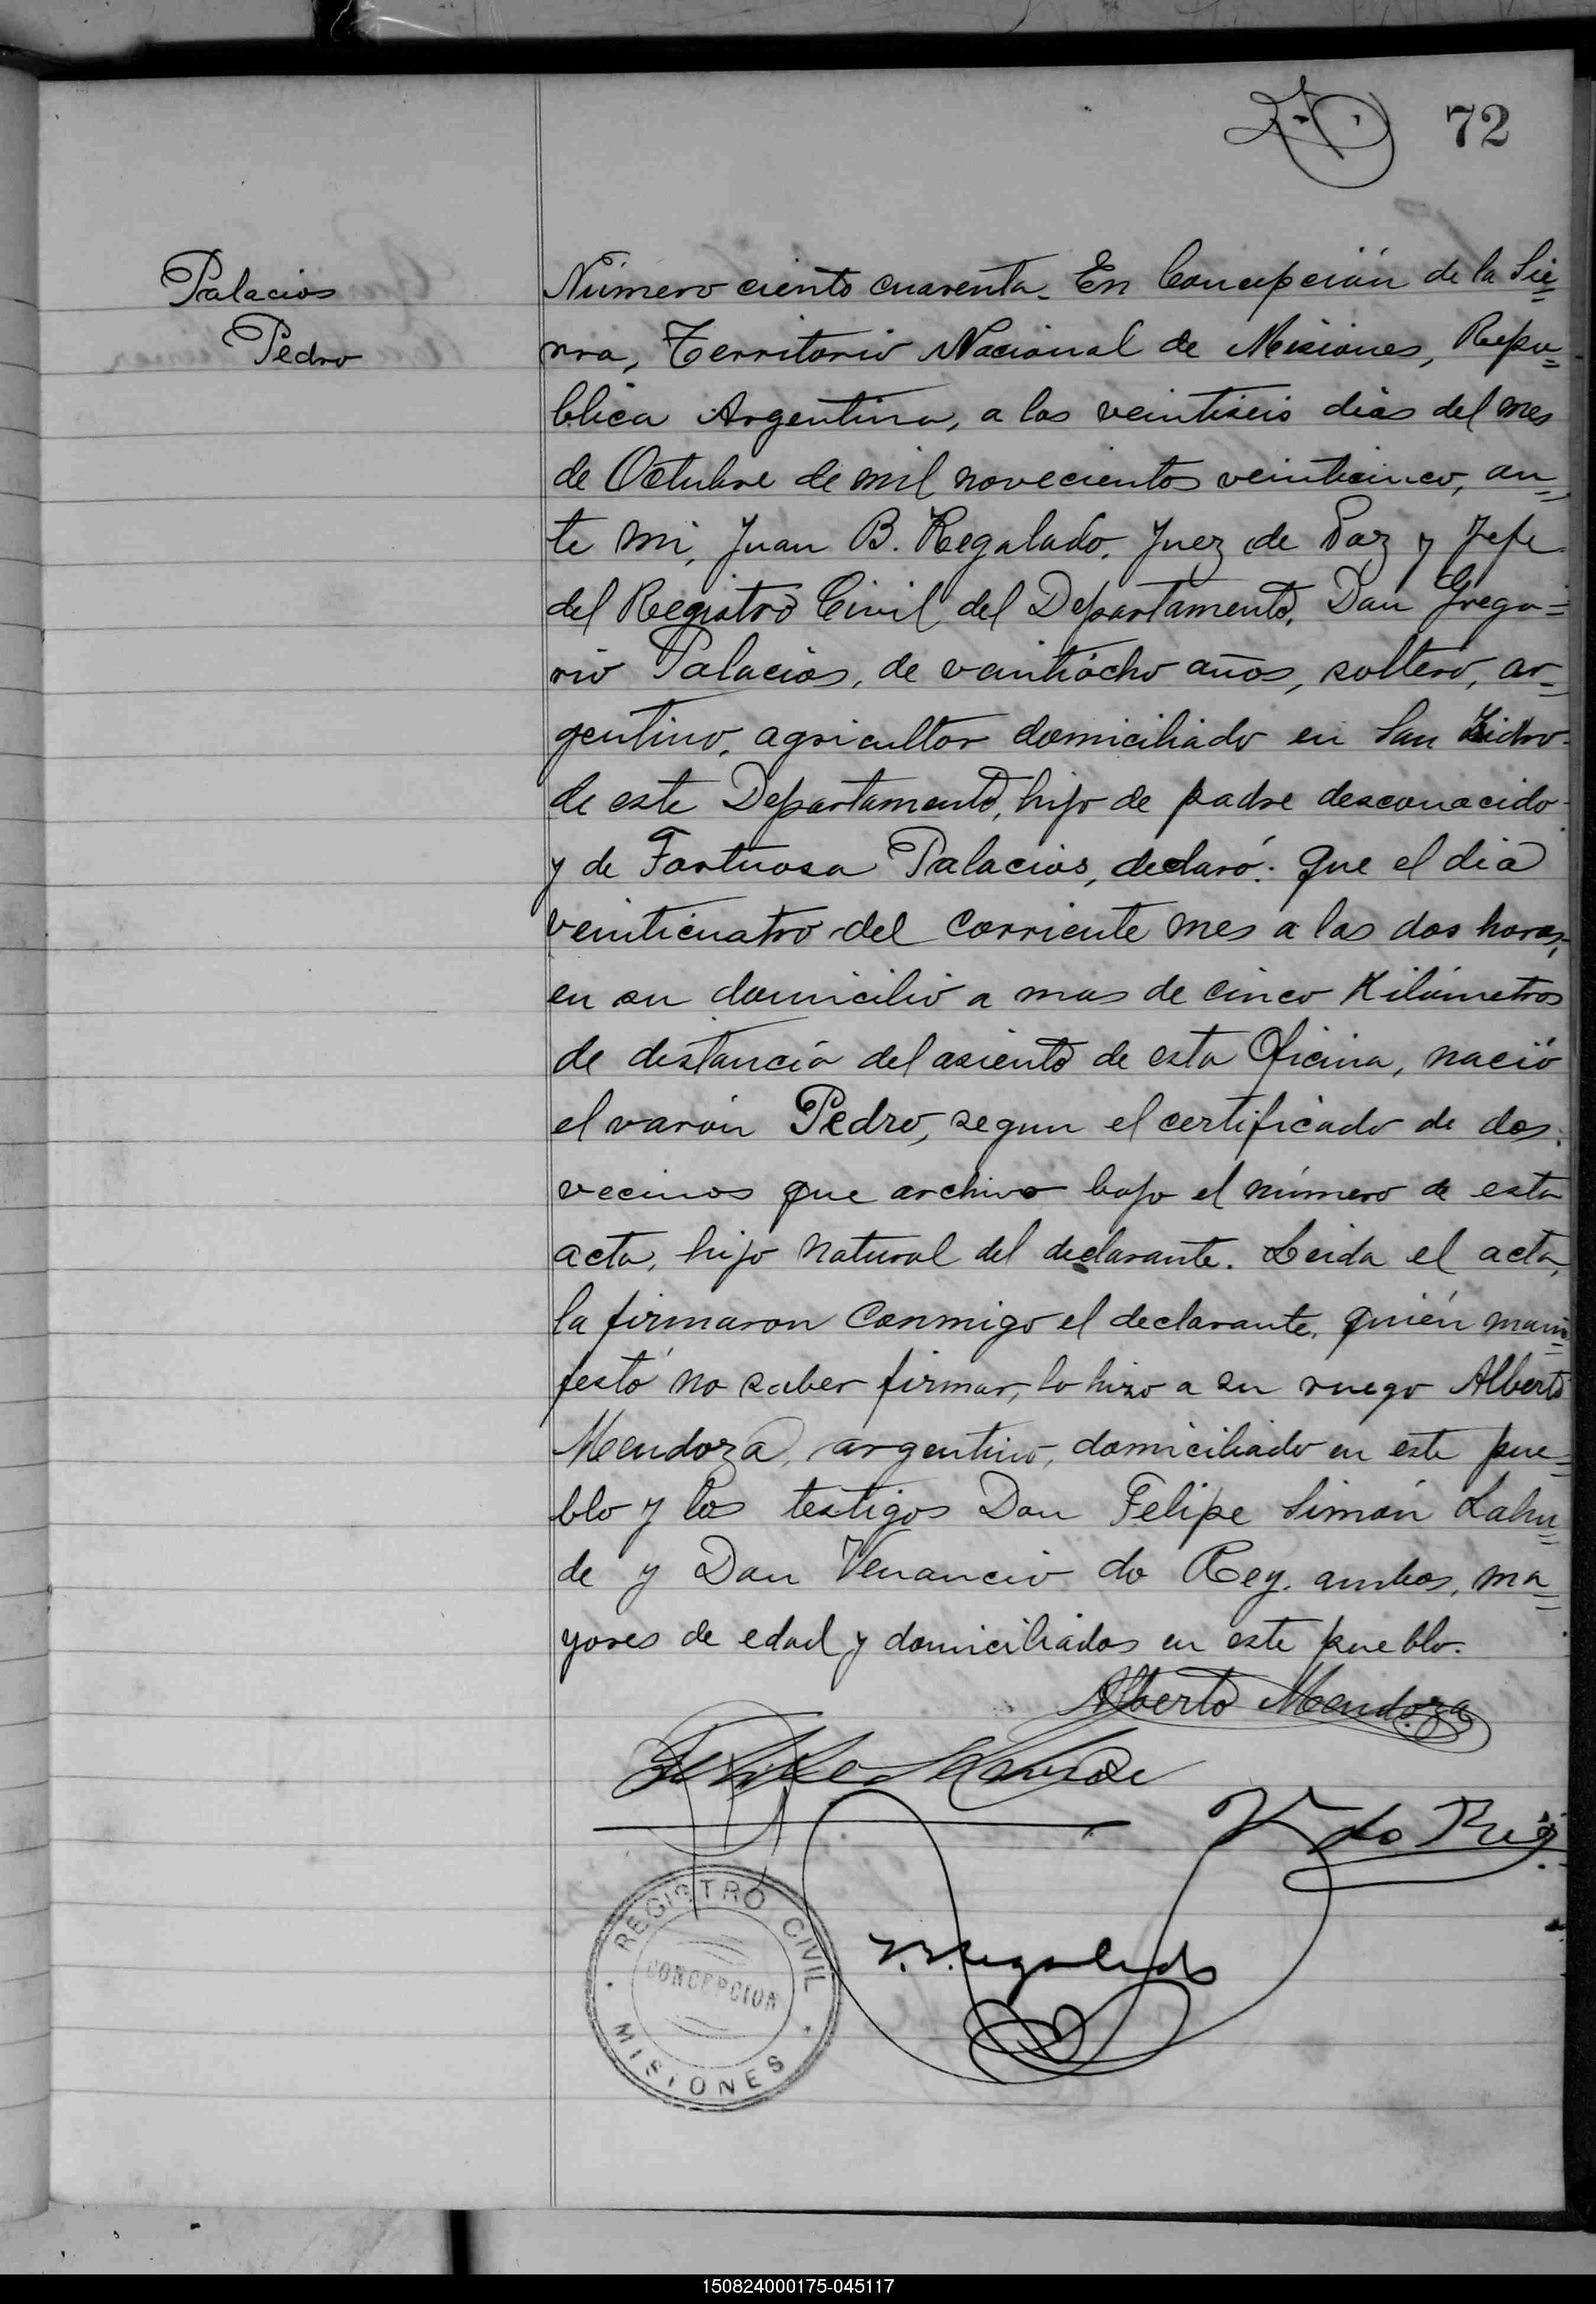 72
Palacios
Pedro
Número ciento cuarenta. En Concepción de la Sie=
rra, Territorio Nacional de Misiones, Repu=
blica Argentina, a los veintiseis dias del mes
de Octubre de mil novecientos veinticinco, an=
te mi, Juan B. Regalado, Juez de Paz y Jefe
del Registro Civil del Departamento, Don Grego=
rio Palacios, de veintiocho años, soltero, ar=
gentino, agricultor domiciliado en San Isidro
de este Departamento, hijo de padre desconocido
y de Fortuosa Palacios, declaró: Que el dia
veinticuatro del corriente mes a las dos horas,
en su domicilio a mas de cinco Kilómetros
de distancia del asiento de esta Oficina, nació
el varón Pedro, segun el certificado de dos
vecinos que archivo bajo el número de esta
acta, hijo natural del declarante. Leida el acta,
la firmaron conmigo el declarante, quién mani=
festó no saber firmar, lo hizo a su ruego Alberto
Mendoza, argentino, domiciliado en este pue=
blo y los testigos Don Felipe Simón Lahu=
de y Don Venancio do Rey, ambos, ma=
yores de edad y domiciliados en este pueblo.
Alberto Mendoza
Felipe S Lahude
V do Rey
J. B. Regalado
REGISTRO CIVIL
CONCEPCION
MISIONES
150824000175-045117